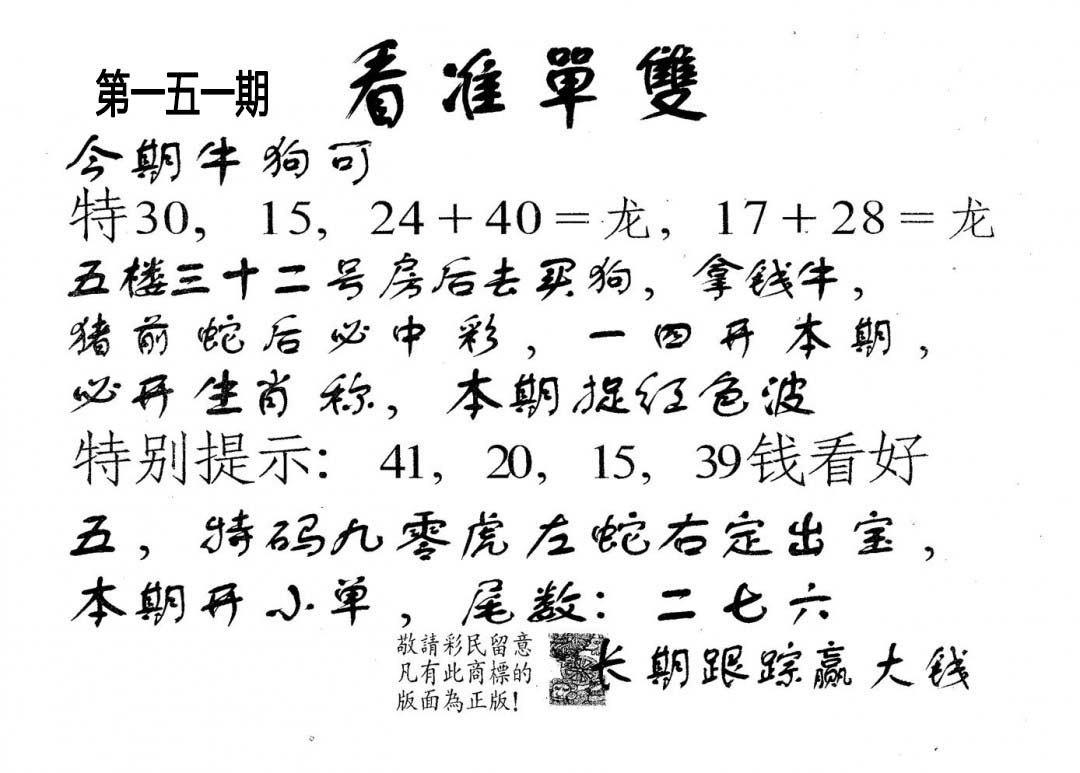 第一五一期
看准單雙
今期牛狗可
特30, 15, 24+40=龙, 17+28=龙
五楼三十二号房后去买狗，拿钱牛，
猪前蛇后必中彩，一四开本期，
必开生肖称，本期捉红色波
特别提示: 41, 20, 15, 39钱看好
五，特码九零虎左蛇右定出宝，
本期开小单，尾数：二七六
敬請彩民留意
凡有此商標的
版面為正版!
长期跟踪赢大钱